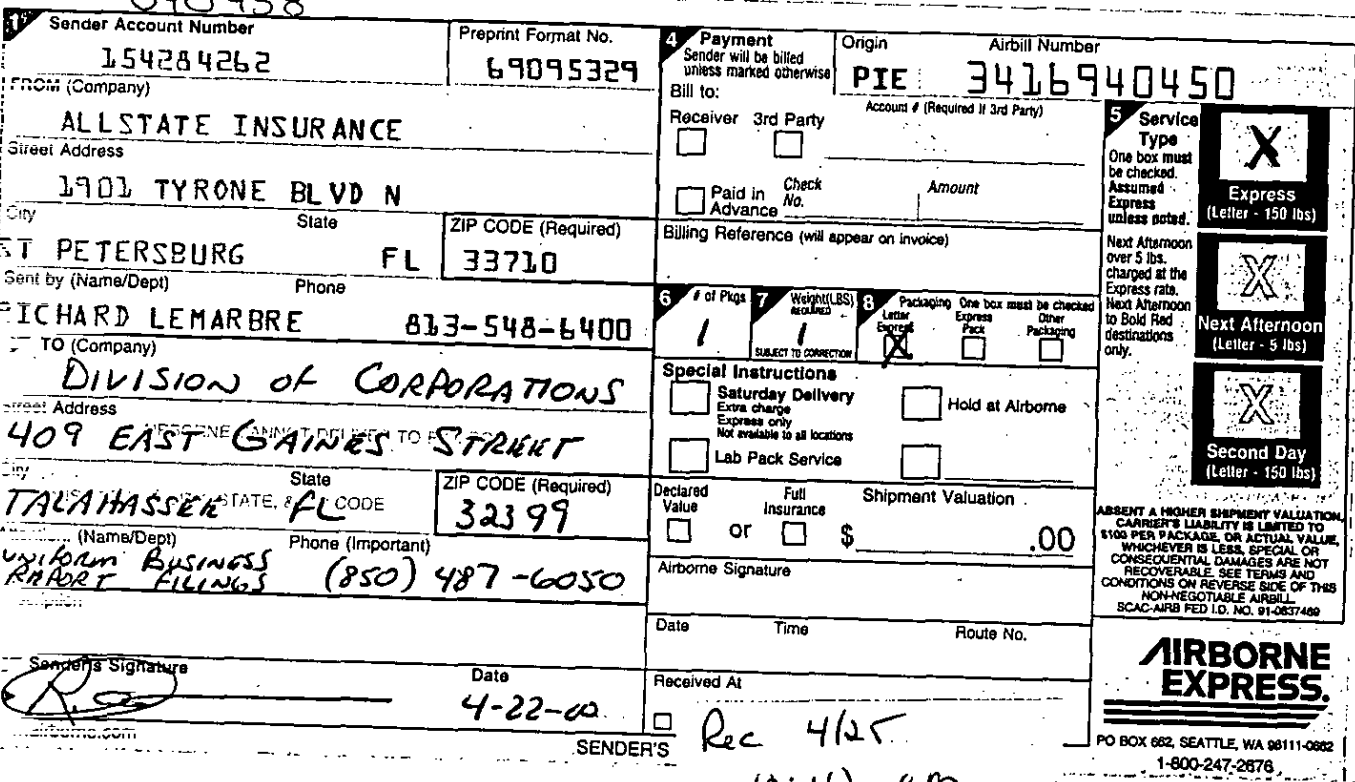 090958
1 Sender Account Number
154284262
Preprint Format No.
69095329
FROM (Company)
ALLSTATE INSURANCE
Street Address
1901 TYRONE BLVD N
City State ZIP CODE (Required)
ST PETERSBURG FL 33710
Sent by (Name/Dept) Phone
RICHARD LEMARBRE 813-548-6400
TO (Company)
DIVISION OF CORPORATIONS
Street Address
409 EAST GAINES STREET
City State ZIP CODE (Required)
TALAHASSEE FL 32399
(Name/Dept) Phone (Important)
UNIFORM BUSINESS
REPORT FILINGS (850) 487-6050
Sender's Signature Date
4-22-00
SENDER'S
4 Payment
Sender will be billed
unless marked otherwise
Origin Airbill Number
PIE 3416940450
Bill to:
Receiver 3rd Party
Account # (Required If 3rd Party)
Paid in
Advance
Check
No.
Amount
Billing Reference (will appear on invoice)
6 # of Pkgs
1
7 Weight(LBS)
REQUIRED
1
SUBJECT TO CORRECTION
8 Packaging One box must be checked
Letter
Express
X
Express
Pack
Other
Packaging
Special Instructions
Saturday Delivery
Extra charge
Express only
Not available to all locations
Hold at Airborne
Lab Pack Service
Declared
Value
or
Full
Insurance
Shipment Valuation
$ .00
Airborne Signature
Date Time Route No.
Received At
Rec 4/25
5 Service
Type
One box must
be checked.
Assumed
Express
unless noted.
Next Afternoon
over 5 lbs.
charged at the
Express rate.
Next Afternoon
to Bold Red
destinations
only.
X
Express
(Letter - 150 lbs)
X
Next Afternoon
(Letter - 5 lbs)
X
Second Day
(Letter - 150 lbs)
ABSENT A HIGHER SHIPMENT VALUATION,
CARRIER'S LIABILITY IS LIMITED TO
$100 PER PACKAGE, OR ACTUAL VALUE,
WHICHEVER IS LESS, SPECIAL OR
CONSEQUENTIAL DAMAGES ARE NOT
RECOVERABLE. SEE TERMS AND
CONDITIONS ON REVERSE SIDE OF THIS
NON-NEGOTIABLE AIRBILL
SCAC-AIRB FED I.D. NO. 91-0837469
AIRBORNE
EXPRESS.
PO BOX 662, SEATTLE, WA 98111-0662
1-800-247-2676